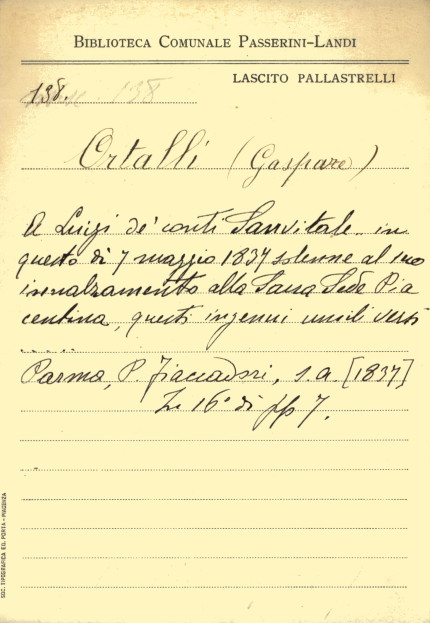 BIBLIOTECA COMUNALE PASSERINI-LANDI
LASCITO PALLASTRELLI
138. 138
Ortalli (Gaspare)
A Luigi de' conti Sanvitale in
questo dì 7 maggio 1837 solenne al suo
innalzamento alla Sacra Sede Pia
centina, questi ingenui umili versi
.....
Parma, P. Fiaccadori, s.a. [1837]
In 16° di pp 7.
SOC. TIPOGRAFICA ED. PORTA - PIACENZA